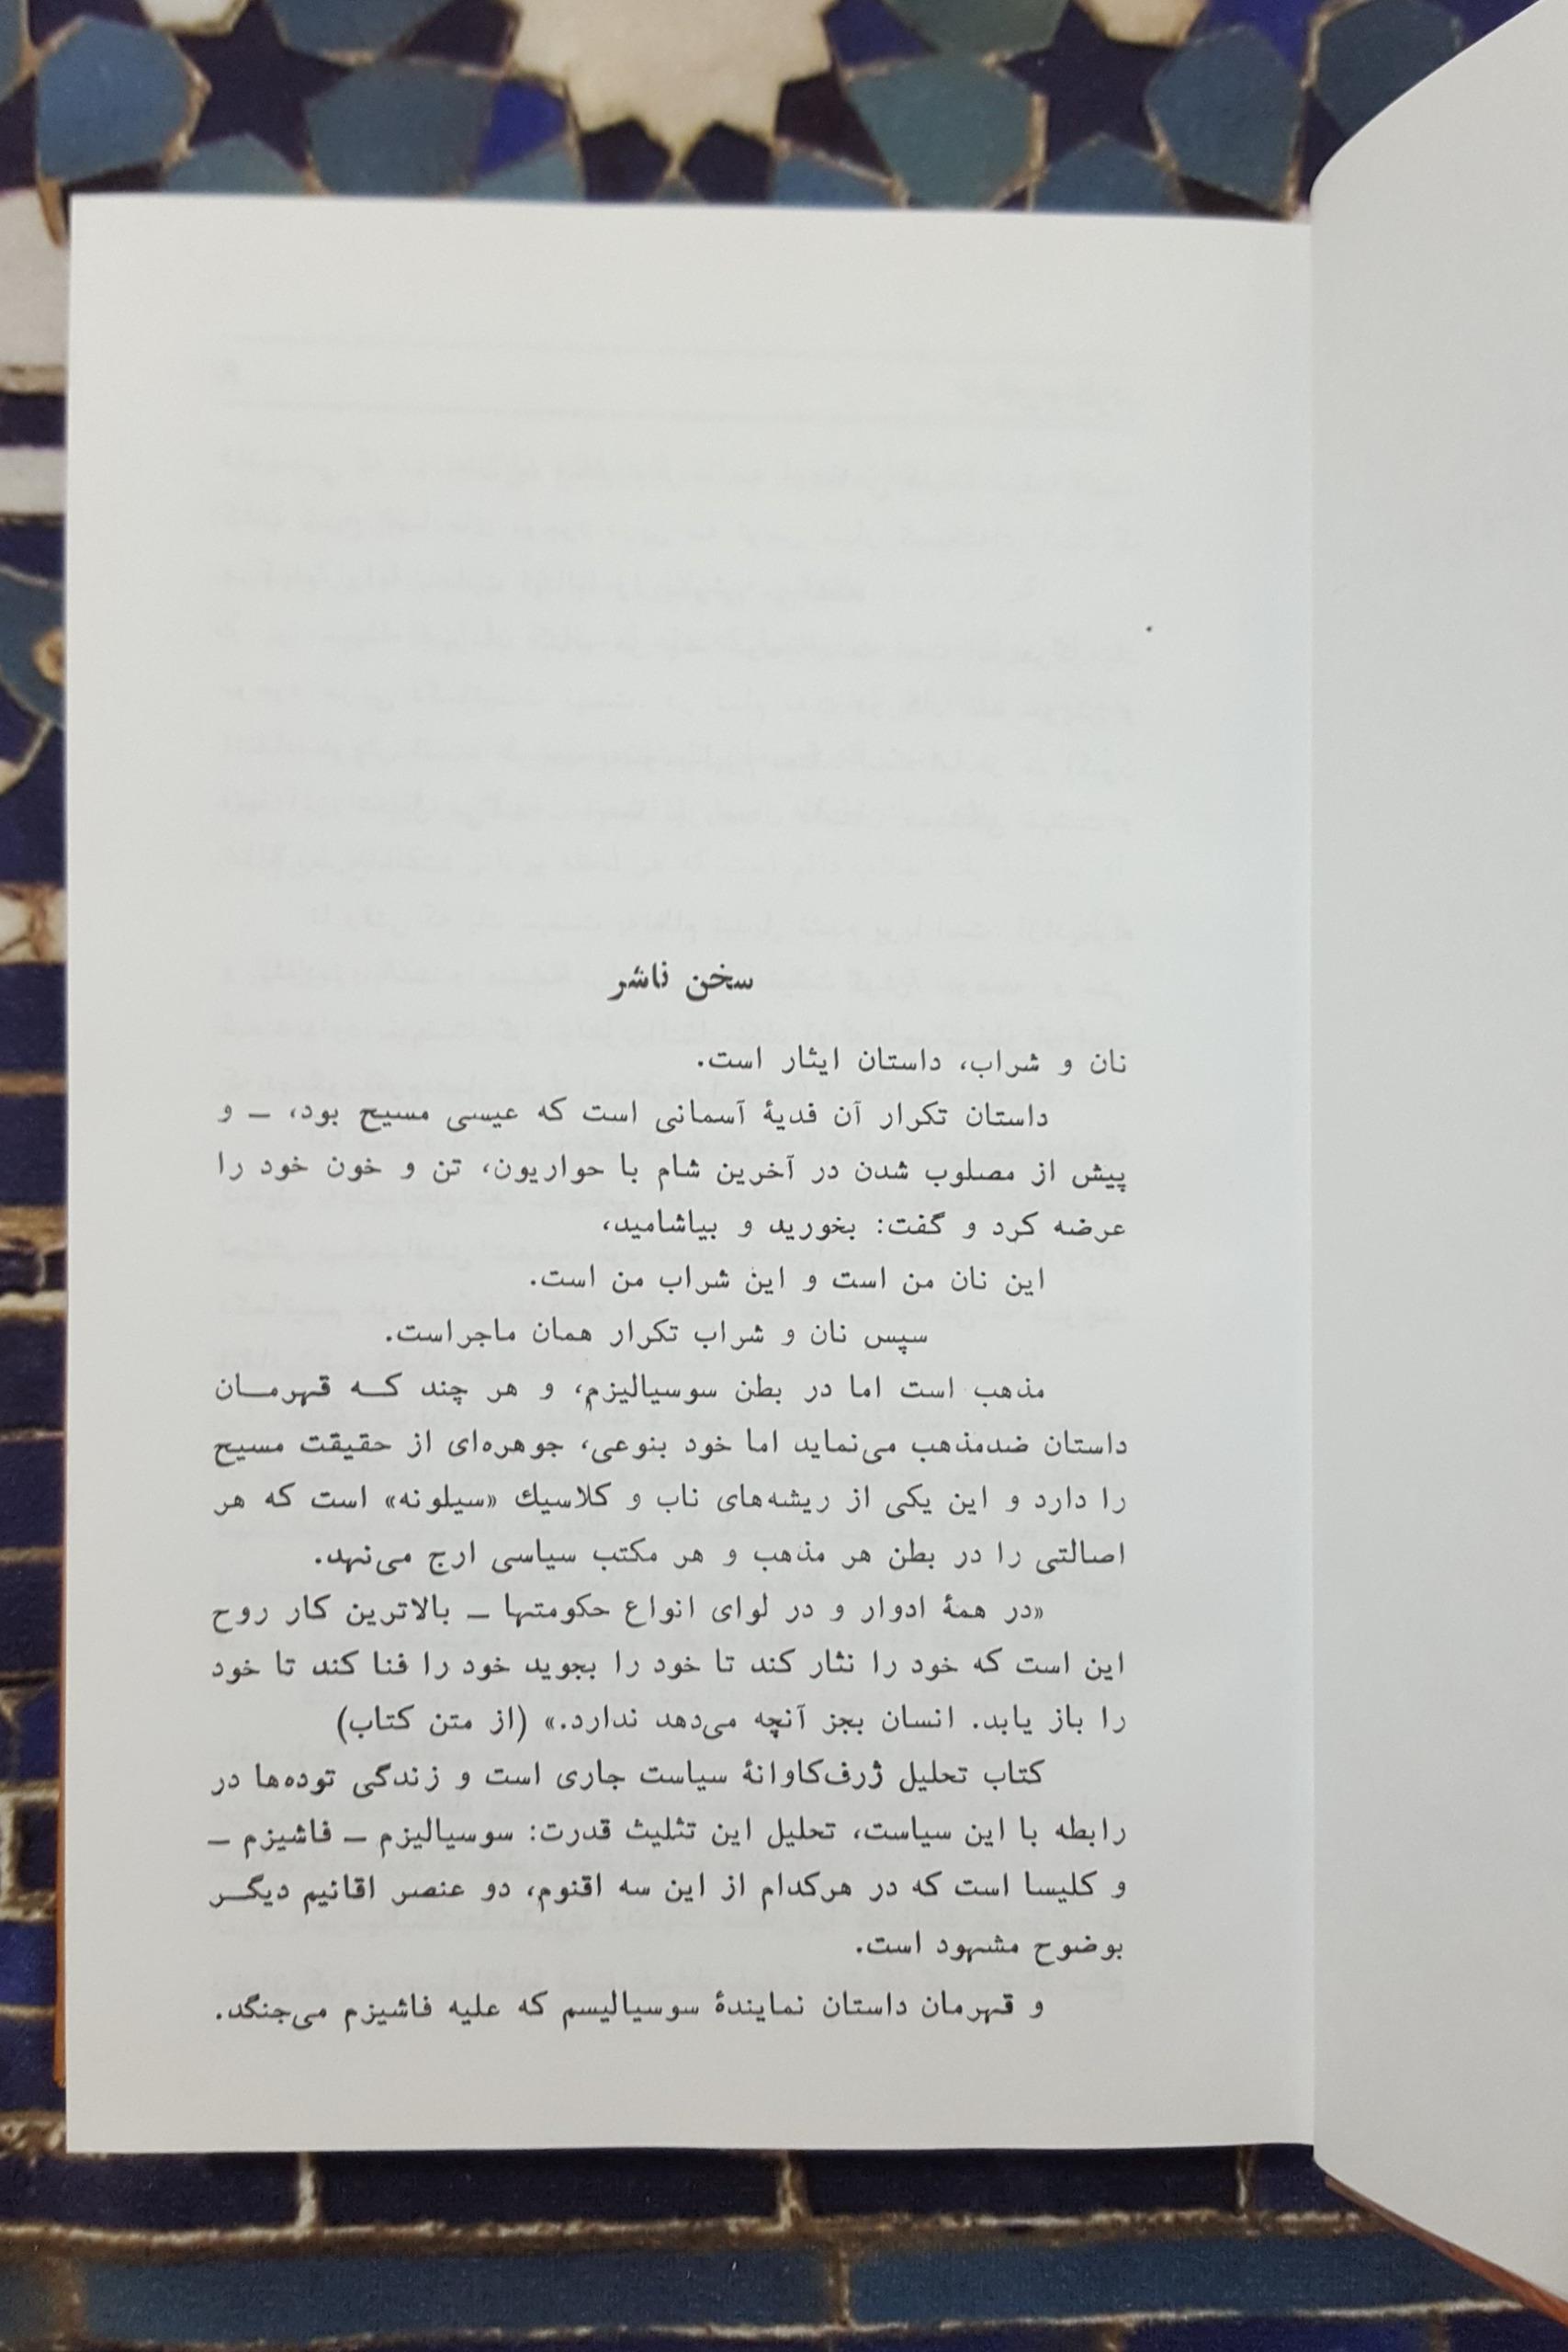 سخن ناشر
نان و شراب، داستان ایثار است.
داستان تکرار آن فدیهٔ آسمانی است که عیسی مسیح بود، ــ و
پیش از مصلوب شدن در آخرین شام با حواریون، تن و خون خود را
عرضه کرد و گفت: بخورید و بیاشامید،
این نان من است و این شراب من است.
سپس نان و شراب تکرار همان ماجراست.
مذهب است اما در بطن سوسیالیزم، و هر چند کــه قهرمــان
داستان ضدمذهب می‌نماید اما خود بنوعی، جوهره‌ای از حقیقت مسیح
را دارد و این یکی از ریشه‌های ناب و کلاسیك «سیلونه» است که هر
اصالتی را در بطن هر مذهب و هر مکتب سیاسی ارج می‌نهد.
«در همهٔ ادوار و در لوای انواع حکومتها ــ بالاترین کار روح
این است که خود را نثار کند تا خود را بجوید خود را فنا کند تا خود
را باز یابد. انسان بجز آنچه می‌دهد ندارد.» (از متن کتاب)
کتاب تحلیل ژرف‌کاوانهٔ سیاست جاری است و زندگی توده‌ها در
رابطه با این سیاست، تحلیل این تثلیث قدرت: سوسیالیزم ــ فاشیزم ــ
و کلیسا است که در هرکدام از این سه اقنوم، دو عنصر اقانیم دیگــر
بوضوح مشهود است.
و قهرمان داستان نمایندهٔ سوسیالیسم که علیه فاشیزم می‌جنگد.